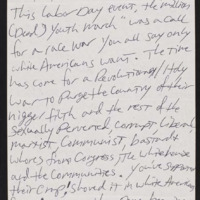 This Labor Day event, the million
(Dead) Youth March" was a call
for a race war you all say only
white Americans want. The time
has come for a Revolutionary/Holy
War to Purge the Country of their
nigger filth and the rest of the
sexually Perverted, corrupt Liberal,
marxist, Communist, bastards
whores from Congress, the White house
and the Communities. You've
their Crap! shoved it in white America